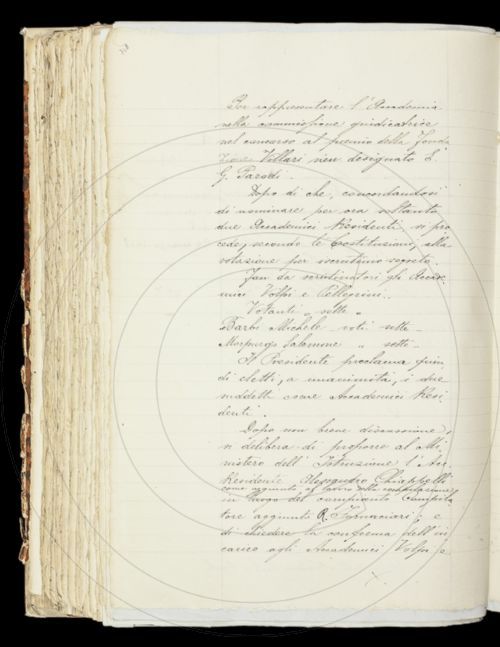 Per rappresentare l'Accademia
nella commissione giudicatrice
nel concorso al premio della Fonda
zione Villari vien designato L'
G. Parodi.
Dopo di che, concordandosi
di nominare per ora soltanto
due Accademici Residenti, si pro
cede, secondo le Costituzioni, alla
votazione per scrutinio segreto.
Fan da scrutinatori gli Accade
mici Volpi e Pellegrini.
Votanti, sette.
Barbi Michele voti sette
Morpurgo Salomone " sette
Il Presidente proclama quin
di eletti, a unanimità, i due
suddetti come Accademici Resi
denti.
Dopo non breve discussione
si delibera di proporre al Mi
nistero dell'Istruzione l'Acc.
Residente Alessandro Chiappelli
come aggiunto al lavoro della compilazione
in luogo del compianto Compila
tore aggiunto R. Fornaciari, e
di chiedere la conferma dell'in
carico agli Accademici Volpi e